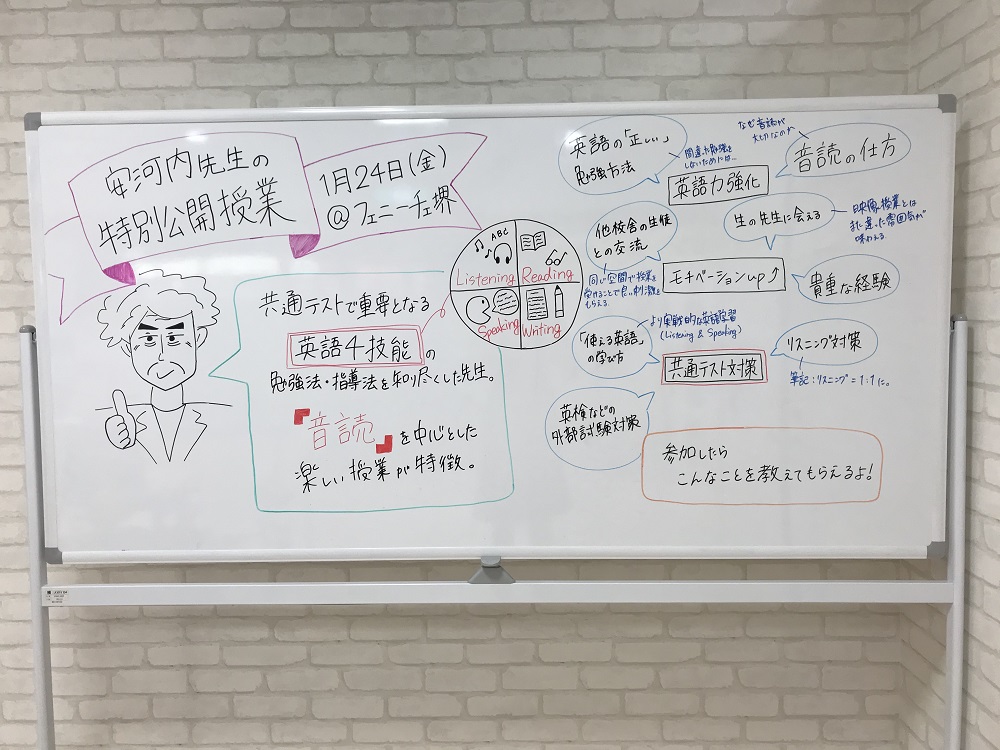 安河内先生の
特別公開授業
1月24日(金)
@フェニーチェ堺
共通テストで重要となる
英語4技能の
勉強法・指導法を知り尽くした先生。
『音読』を中心とした
楽しい授業が特徴。
ABC
Listening
Reading
Speaking
Writing
英語の「正しい」
勉強方法
間違った勉強を
しないためには…
英語力強化
なぜ音読が
大切なのか
音読の仕方
他校舎の生徒
との交流
同じ空間で授業を
受けることで良い刺激を
もらえる。
生の先生に会える
映像授業とは
また違った雰囲気が
味わえる
モチベーションup↑
貴重な経験
「使える英語」
の学び方
より実戦的な英語学習
(Listening & Speaking)
共通テスト対策
リスニング対策
筆記:リスニング=1:1に。
英検などの
外部試験対策
参加したら
こんなことを教えてもらえるよ!